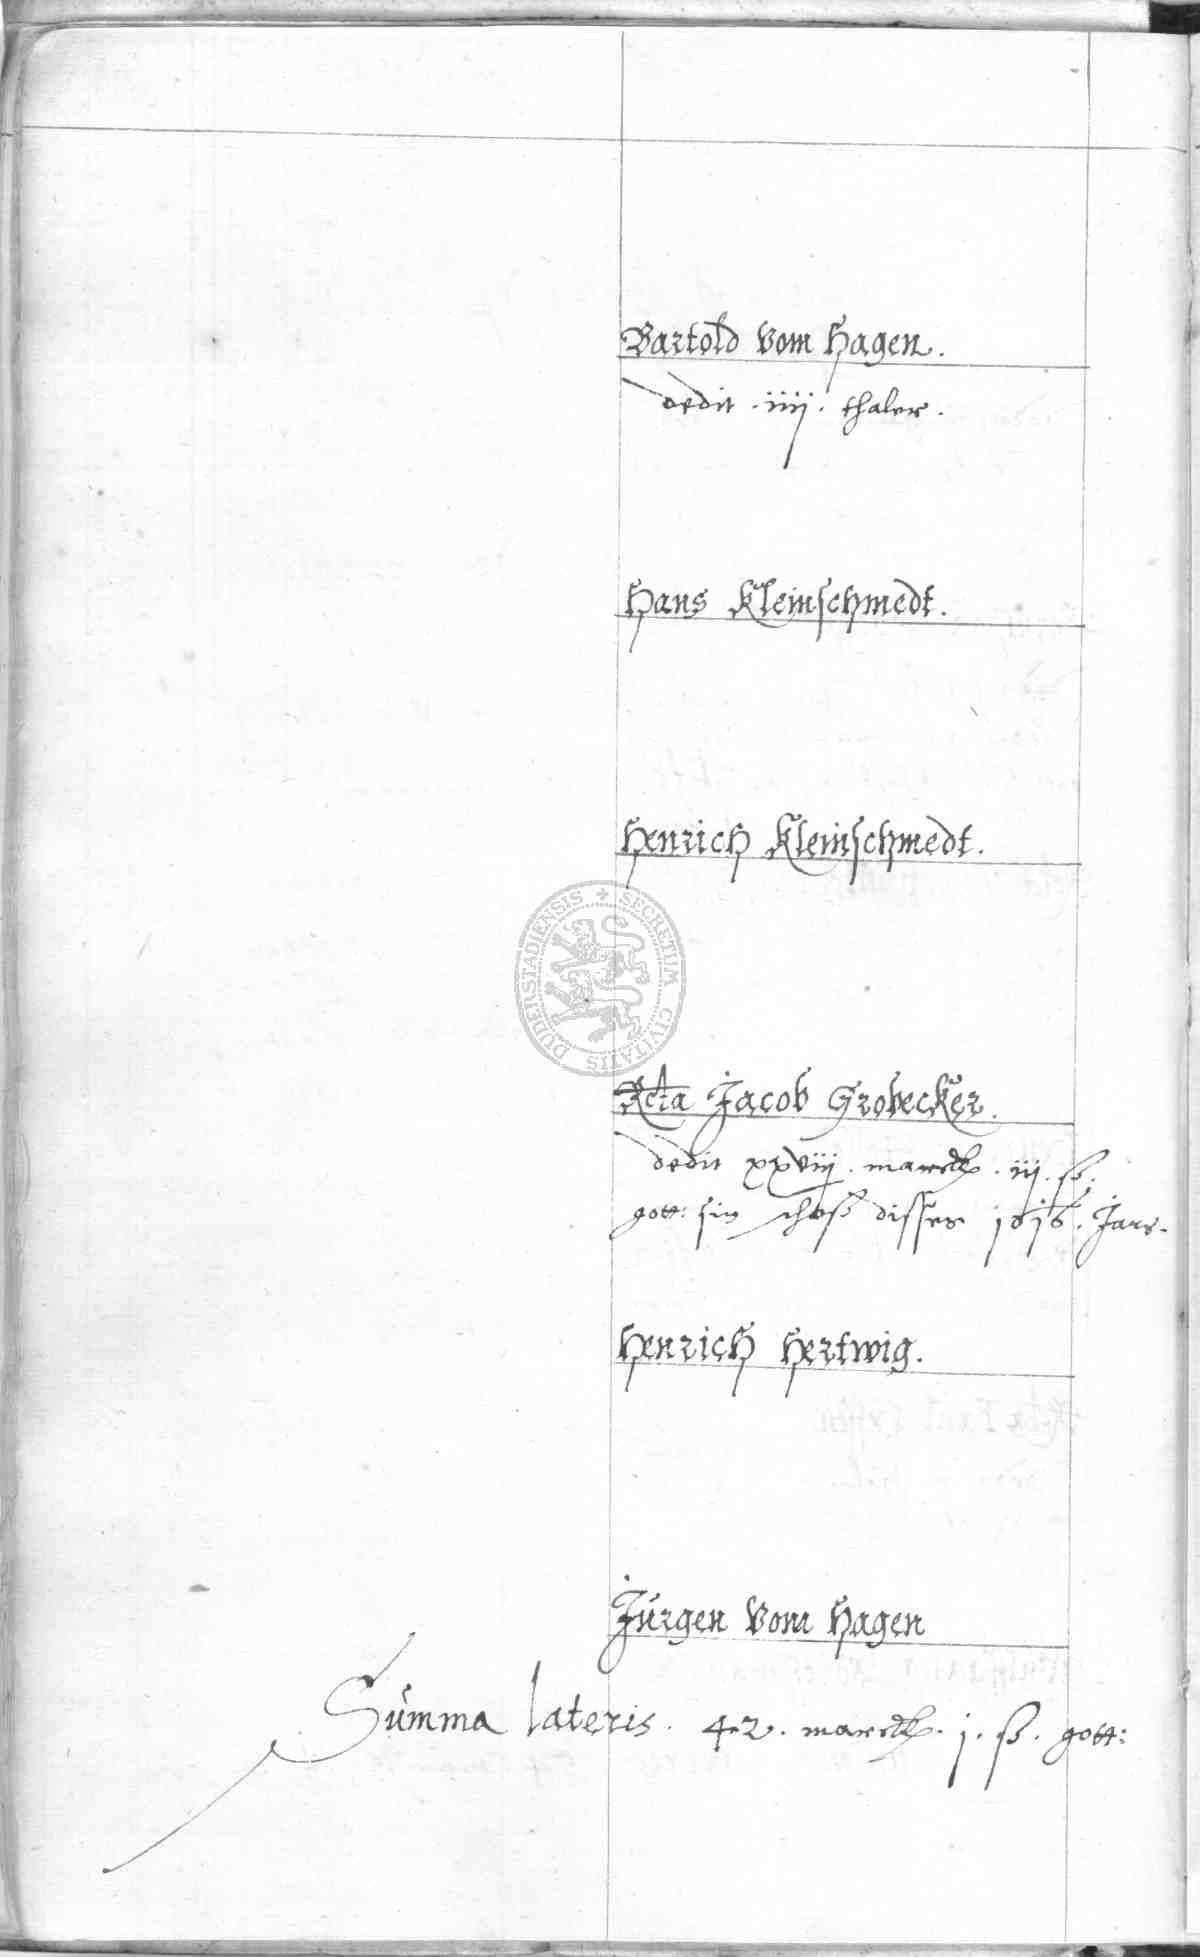 Bartold vom Hagen.
dedit . iiij . thaler .
Hans Kleinschmedt.
Henrich Kleinschmedt.
SECRETUM CIVITATIS DUDERSTADIENSIS
Rcta Jacob Grobecker.
dedit xxviij . marck . iij . ß .
gott: sin schoß disses 1616 . Jars .
Henrich Hertwig.
Jürgen vom Hagen
Summa lateris . 42 . marck . j . ß . gott: